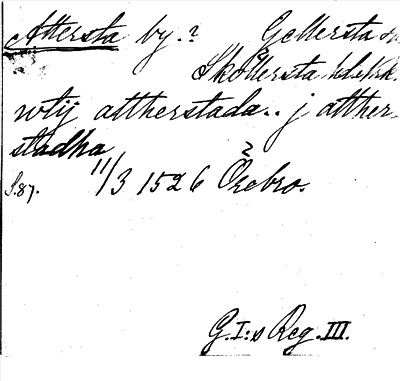 Attersta by.? Gellersta sn.
Skollersta hd. Nrk.
wtij attherstada.. j atther-
stadha
S.87. 11/3 1526 Örebro.
G.I:s Reg. III.